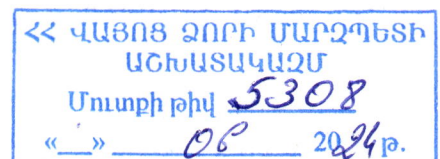 ՀՀ ՎԱՅՈՑ ՁՈՐԻ ՄԱՐԶՊԵՏԻ
ԱՇԽԱՏԱԿԱԶՄ
Մուտքի թիվ 5308
«__» 08 2024 թ.